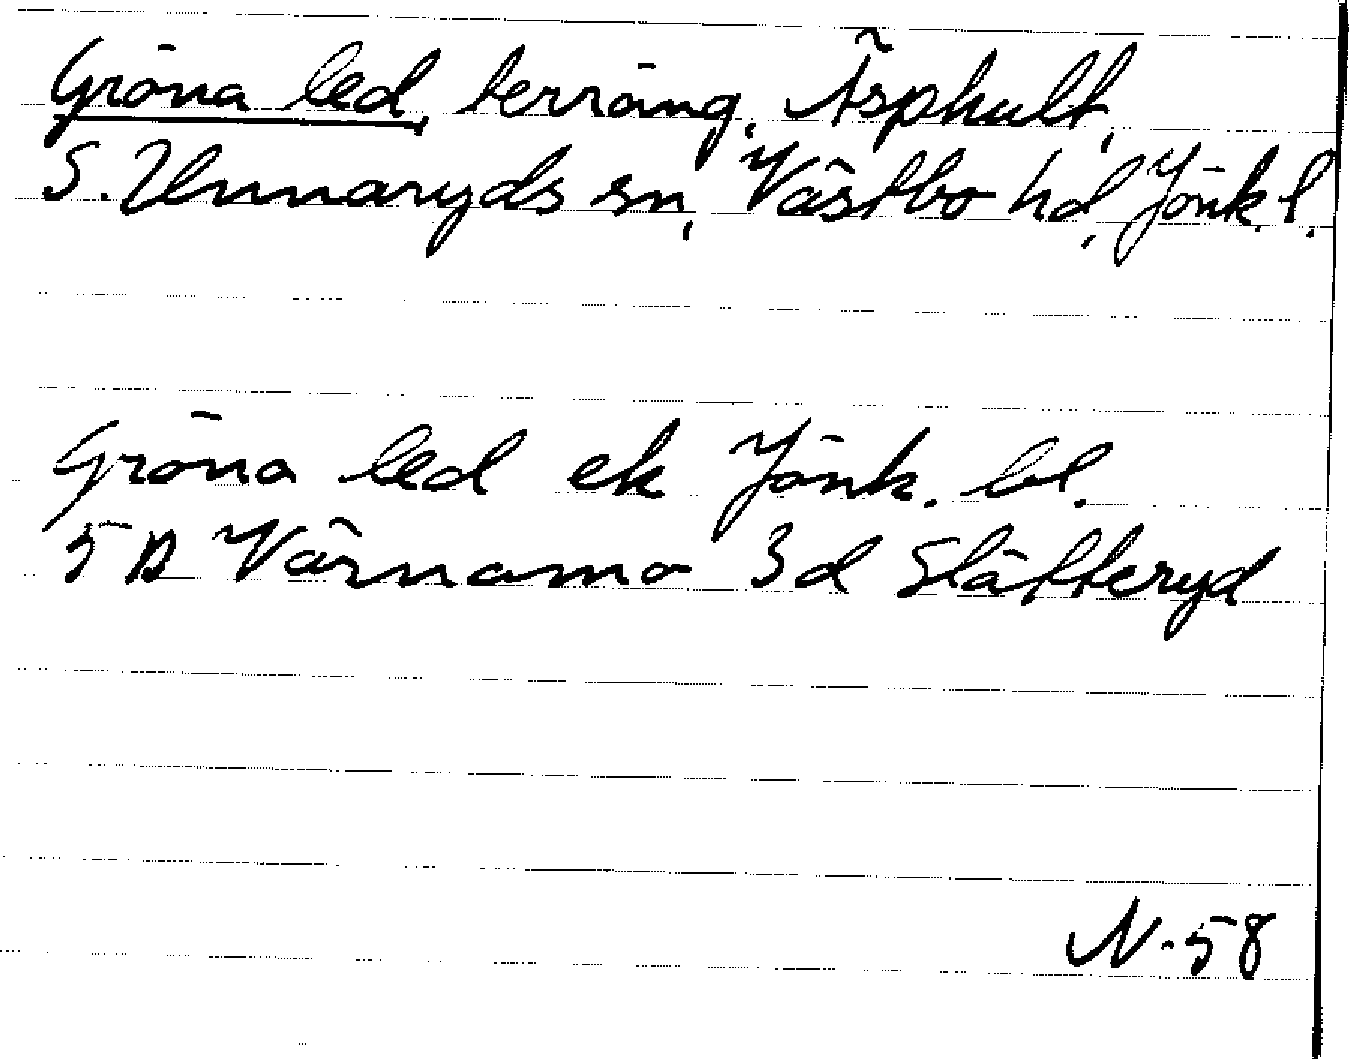 Gröna led, terräng, Äsphult,
S. Unnaryds sn, Västbo hd, Jönk. l.
Gröna led ek Jönk. bl.
5 D Värnamo 3d Slätteryd
N-58